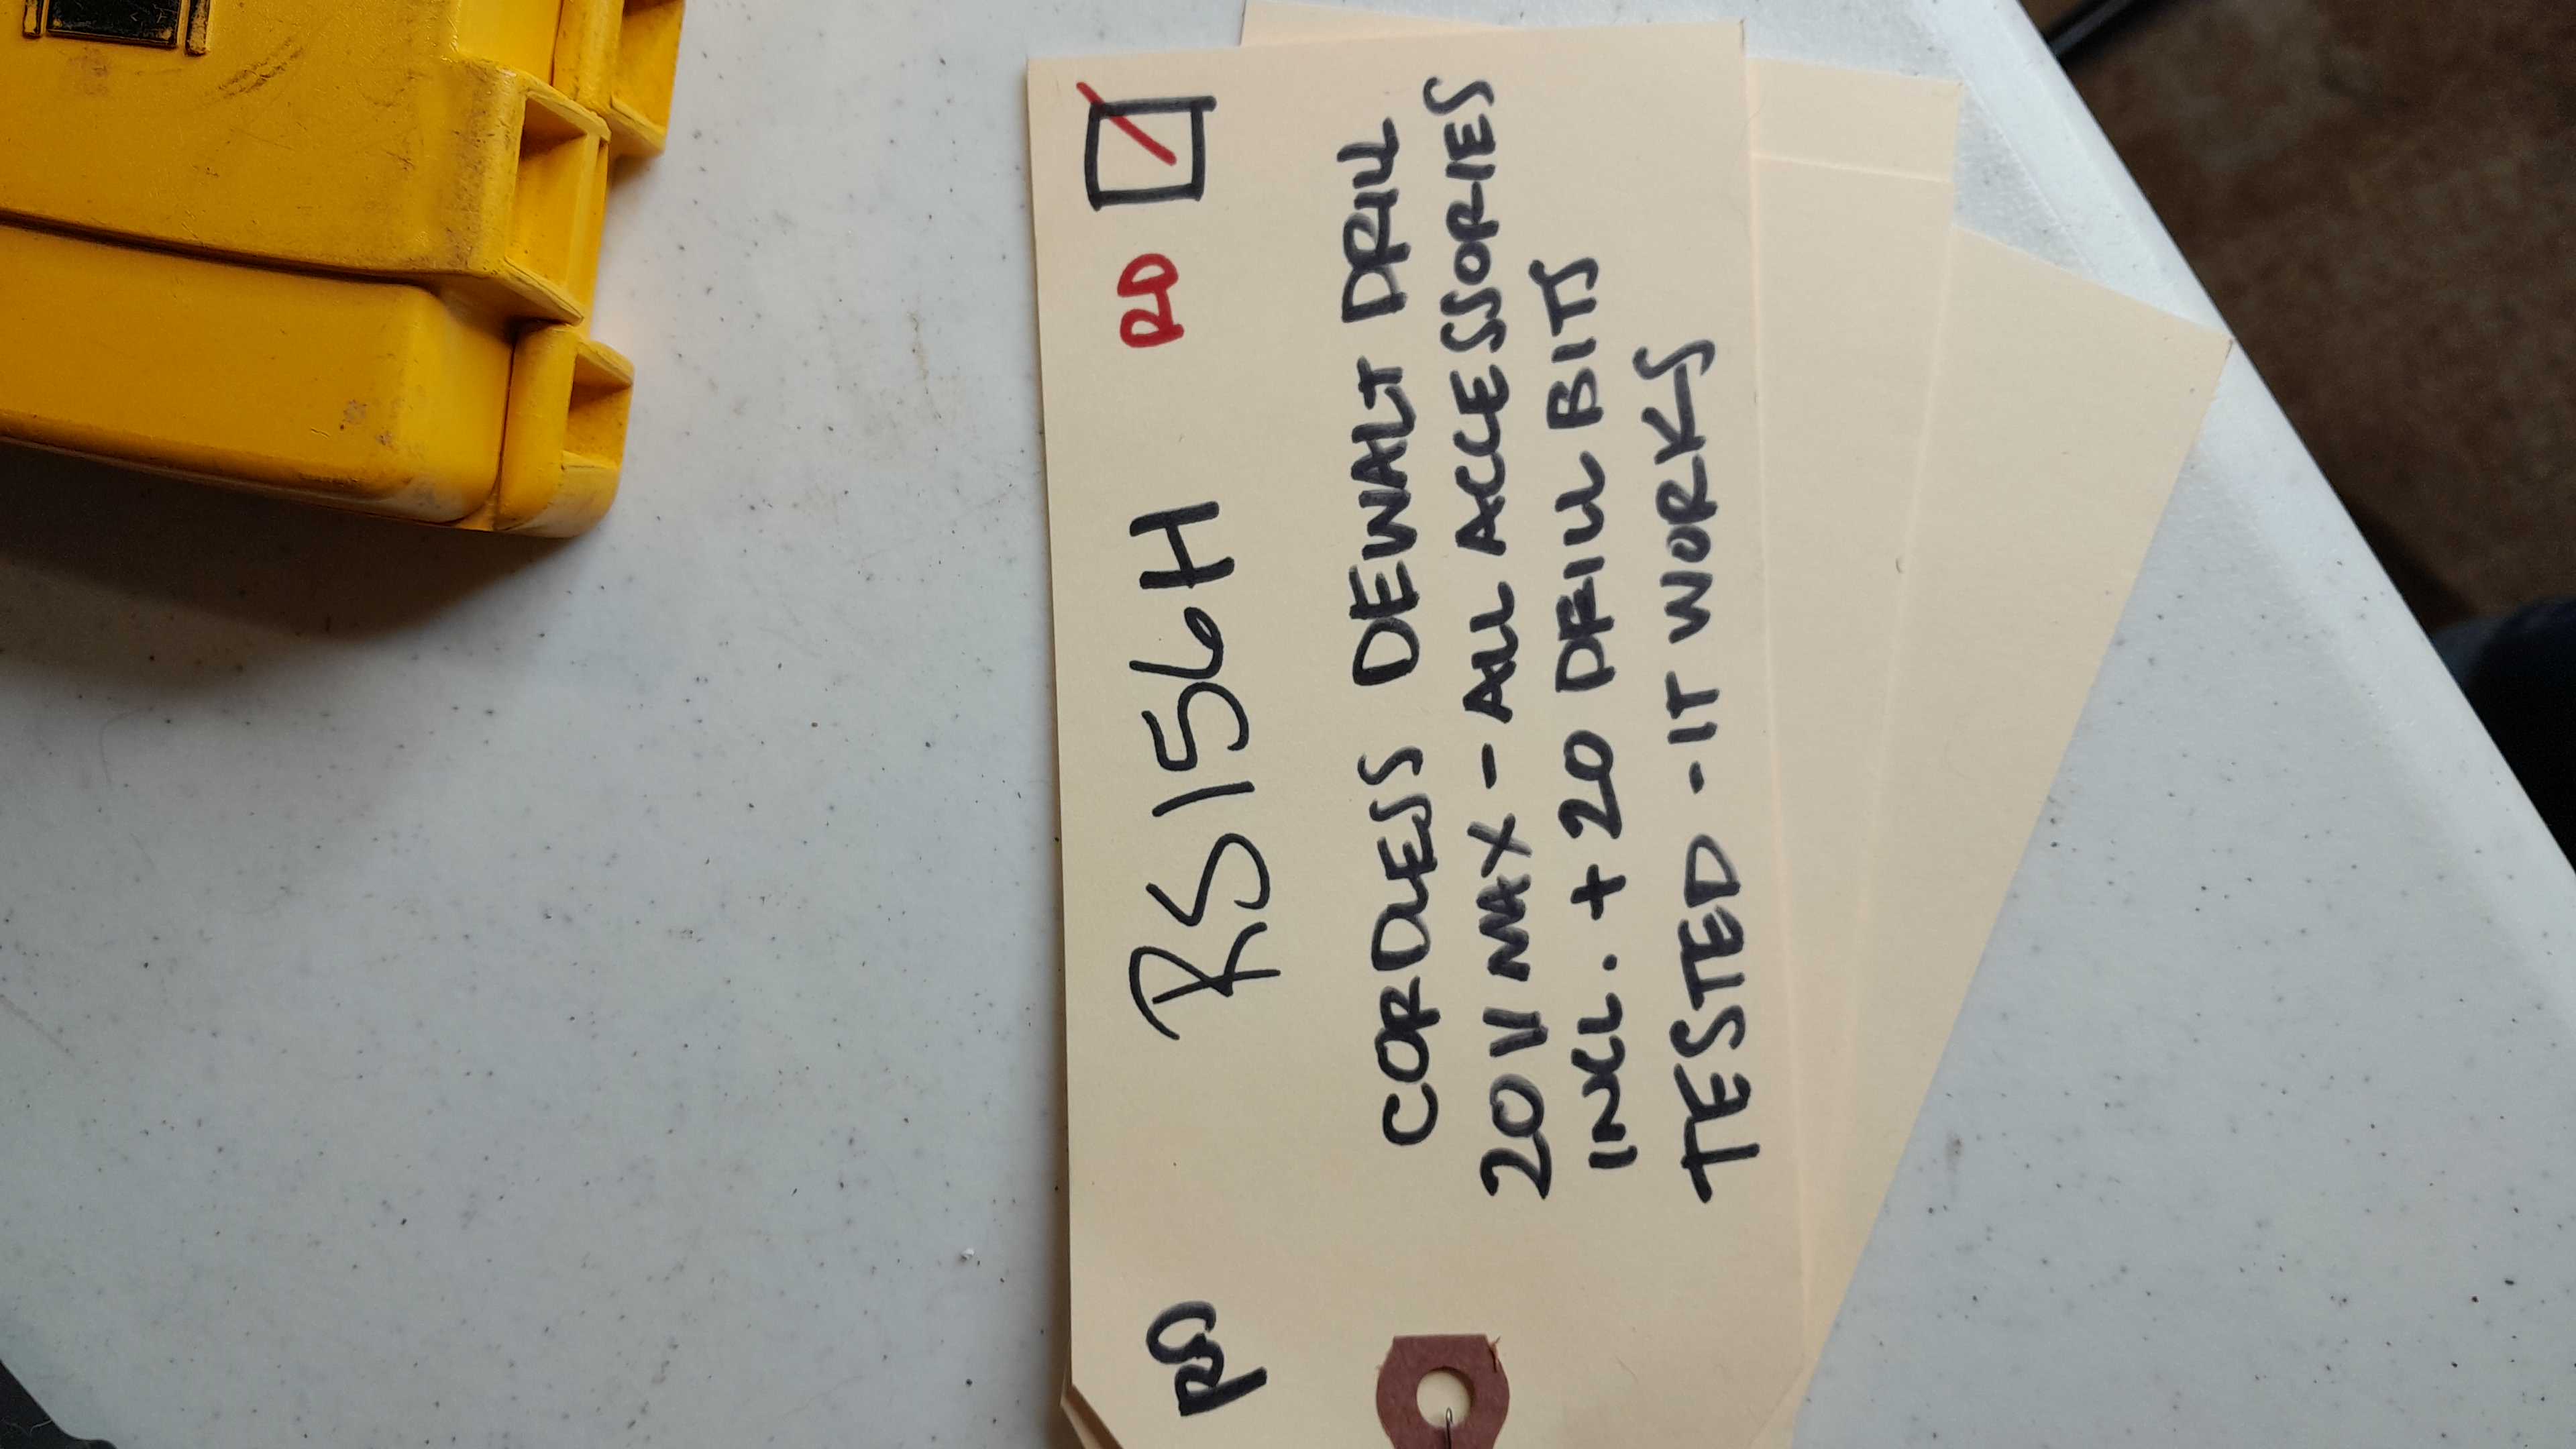 RS RS156H RD
CORDLESS DEWALT DRILL
20V MAX - ALL ACCESSORIES
INCL. + 20 DRILL BITS
TESTED - IT WORKS